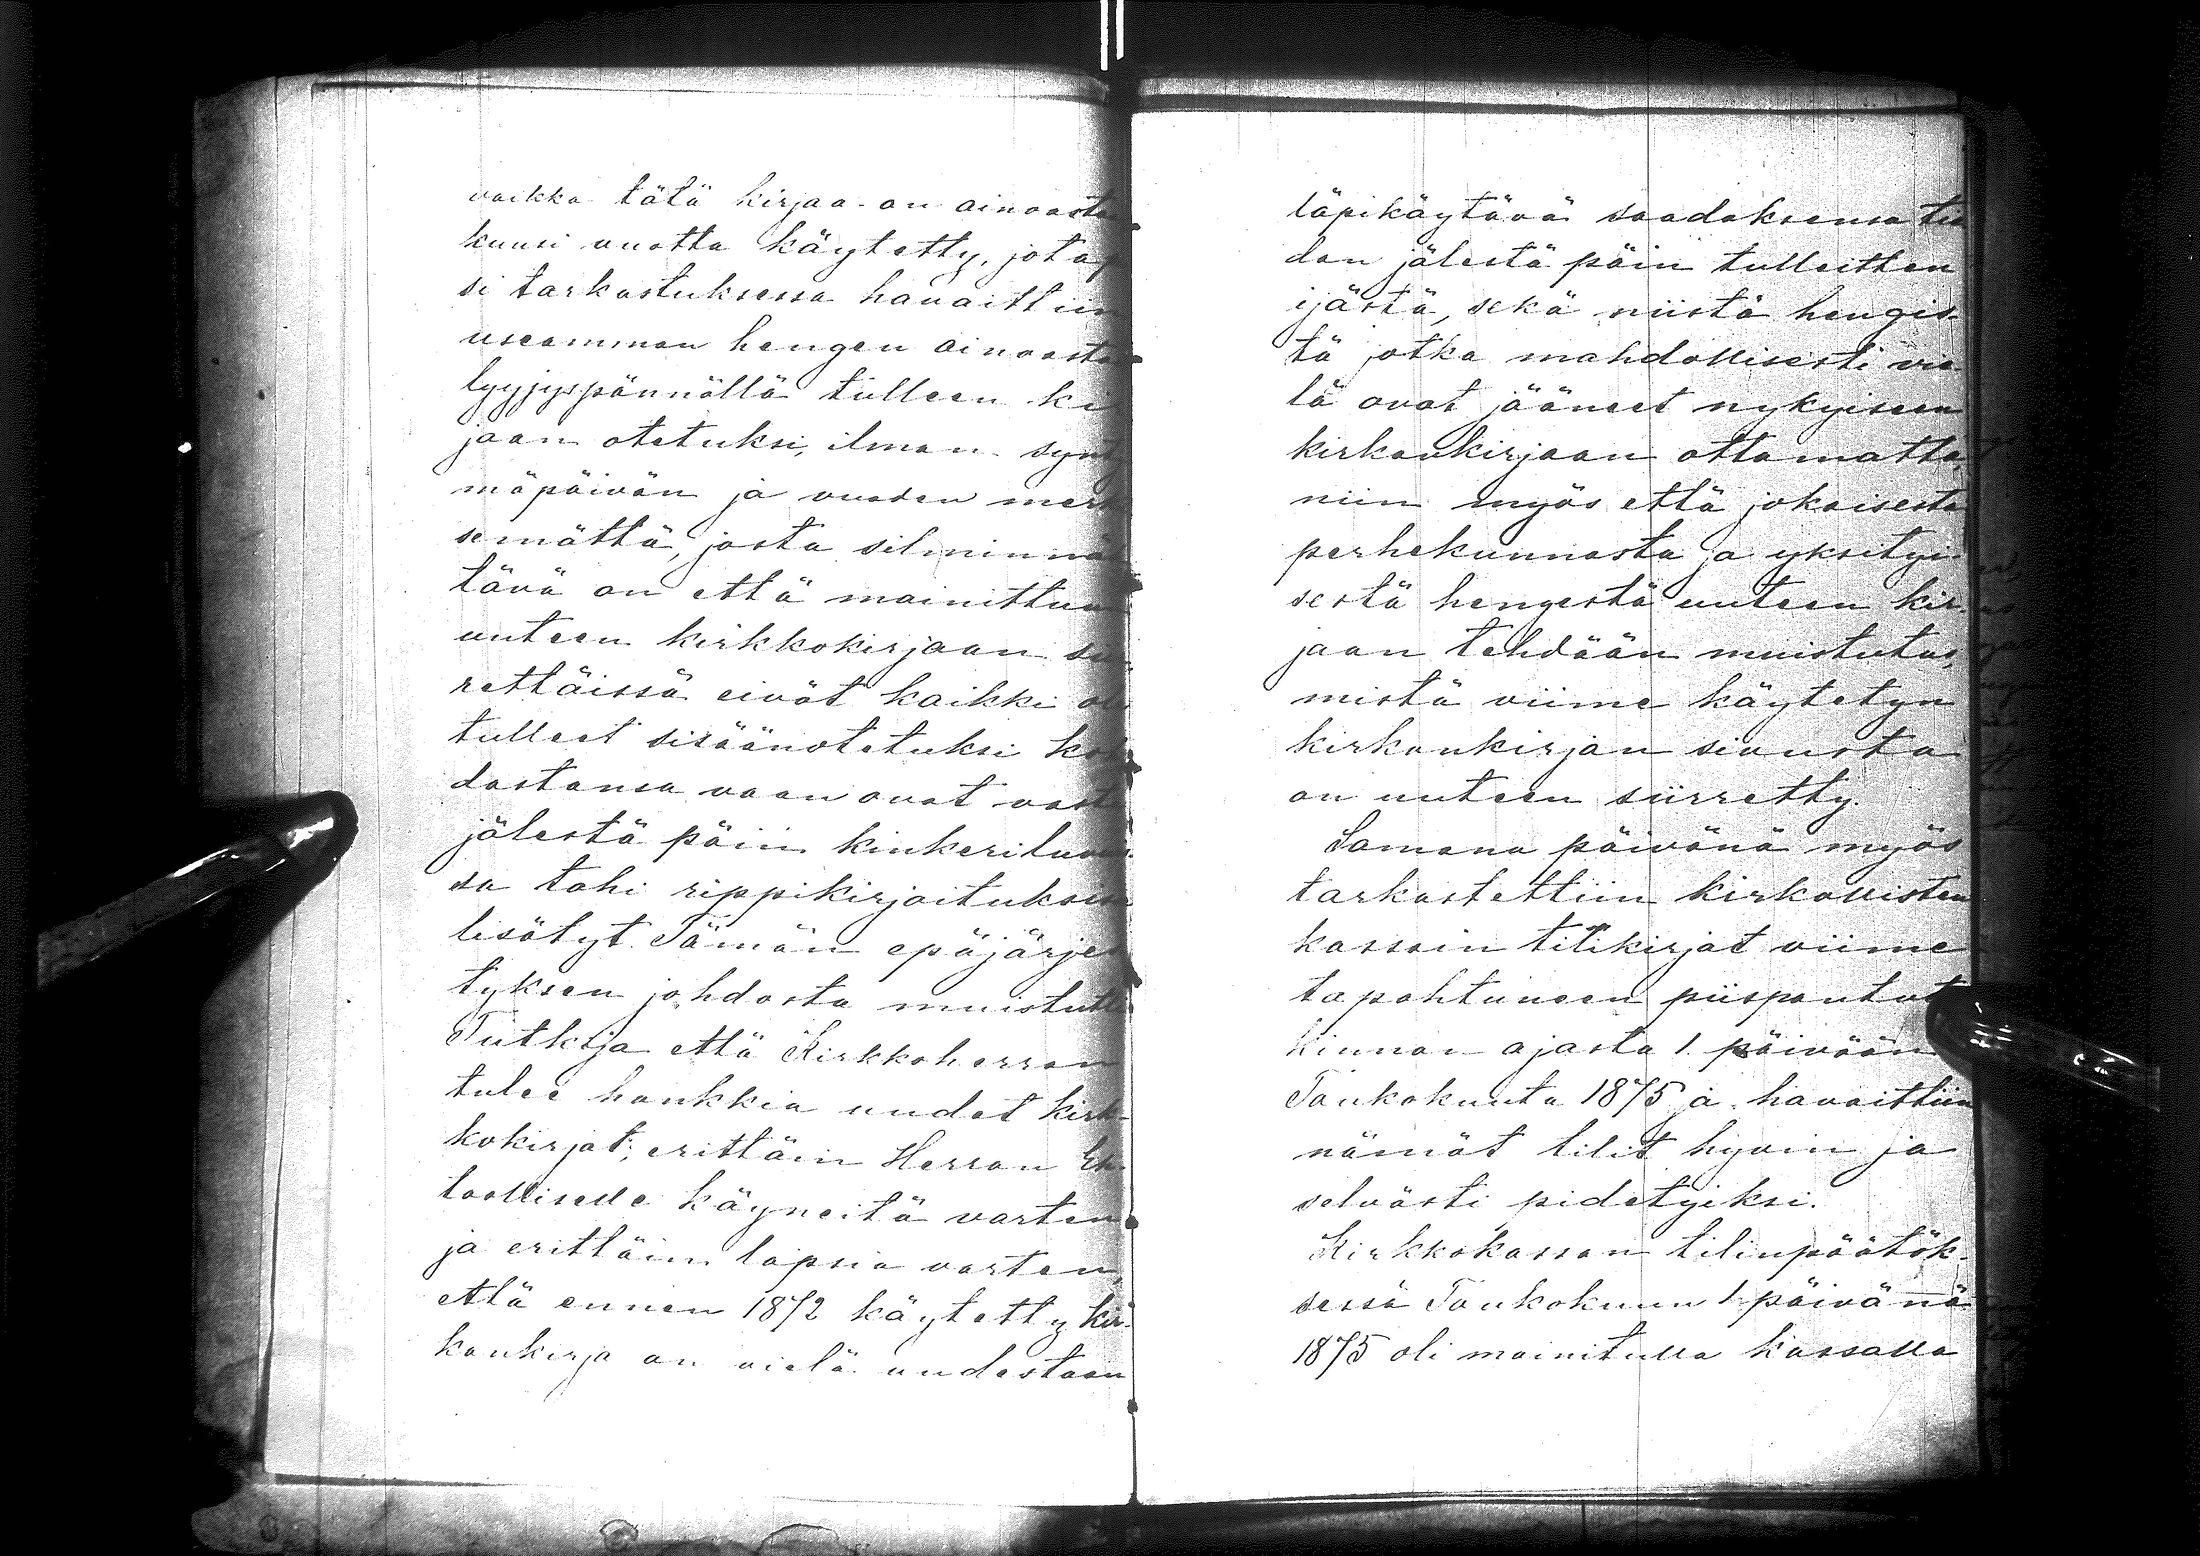 vaikka tätä kirjaa on ainoasta
kuusi vuotta käytetty, jotap
si tarkastuksessa havaittiin
useamman hengen ainoasta
lyyjyspännällä tulleen ki
jaan otetuksi, ilman synt
mäpäivän ja vuoden merk
semättä, josta silminnä
tävä on että mainittuu
uuteen kirkkokirjaan si
rettäissä eivät kaikki ol
tulleet sisäänotetuksi ko
dastansa vaan ovat vast
jälestä päin kinkeriluvu
sa tahi rippikirjoituksis
lisätyt. Tämän epäjärjes
tyksen johdosta muistutt
Tutkija että Kirkkoherran
tulee hankkia uudet kirk-
kokirjat; erittäin Herran Eh-
toolliselle käyneitä varten
ja erittäin lapsia varten,
että ennen 1872 käytetty kir-
konkirja on vielä uudestaan
läpikäytävä saadaksensa tie
don jälestä päin tulleitten
ijästä, sekä niistä hengis-
tä jotka mahdollisesti vie-
lä ovat jääneet nykyiseen
kirkonkirjaan ottamatta,
niin myös että jokaisesta
perhekunnasta ja yksityi-
sestä hengestä uuteen kir-
jaan tehdään muistutus,
mistä viime käytetyn
kirkonkirjan sivusta
on uuteen siirretty.
Samana päivänä myös
tarkastettiin kirkollisten
kassain tilikirjat viime
tapahtuneen piispantut
kinnon ajasta 1 päivään
Toukokuuta 1875 ja havaittiin
nämät tilit hyvin ja
selvästi pidetyiksi.
Kirkkokassan tilinpäätök-
sessä Toukokuun 1 päivänä
1875 oli mainitulla kassalla